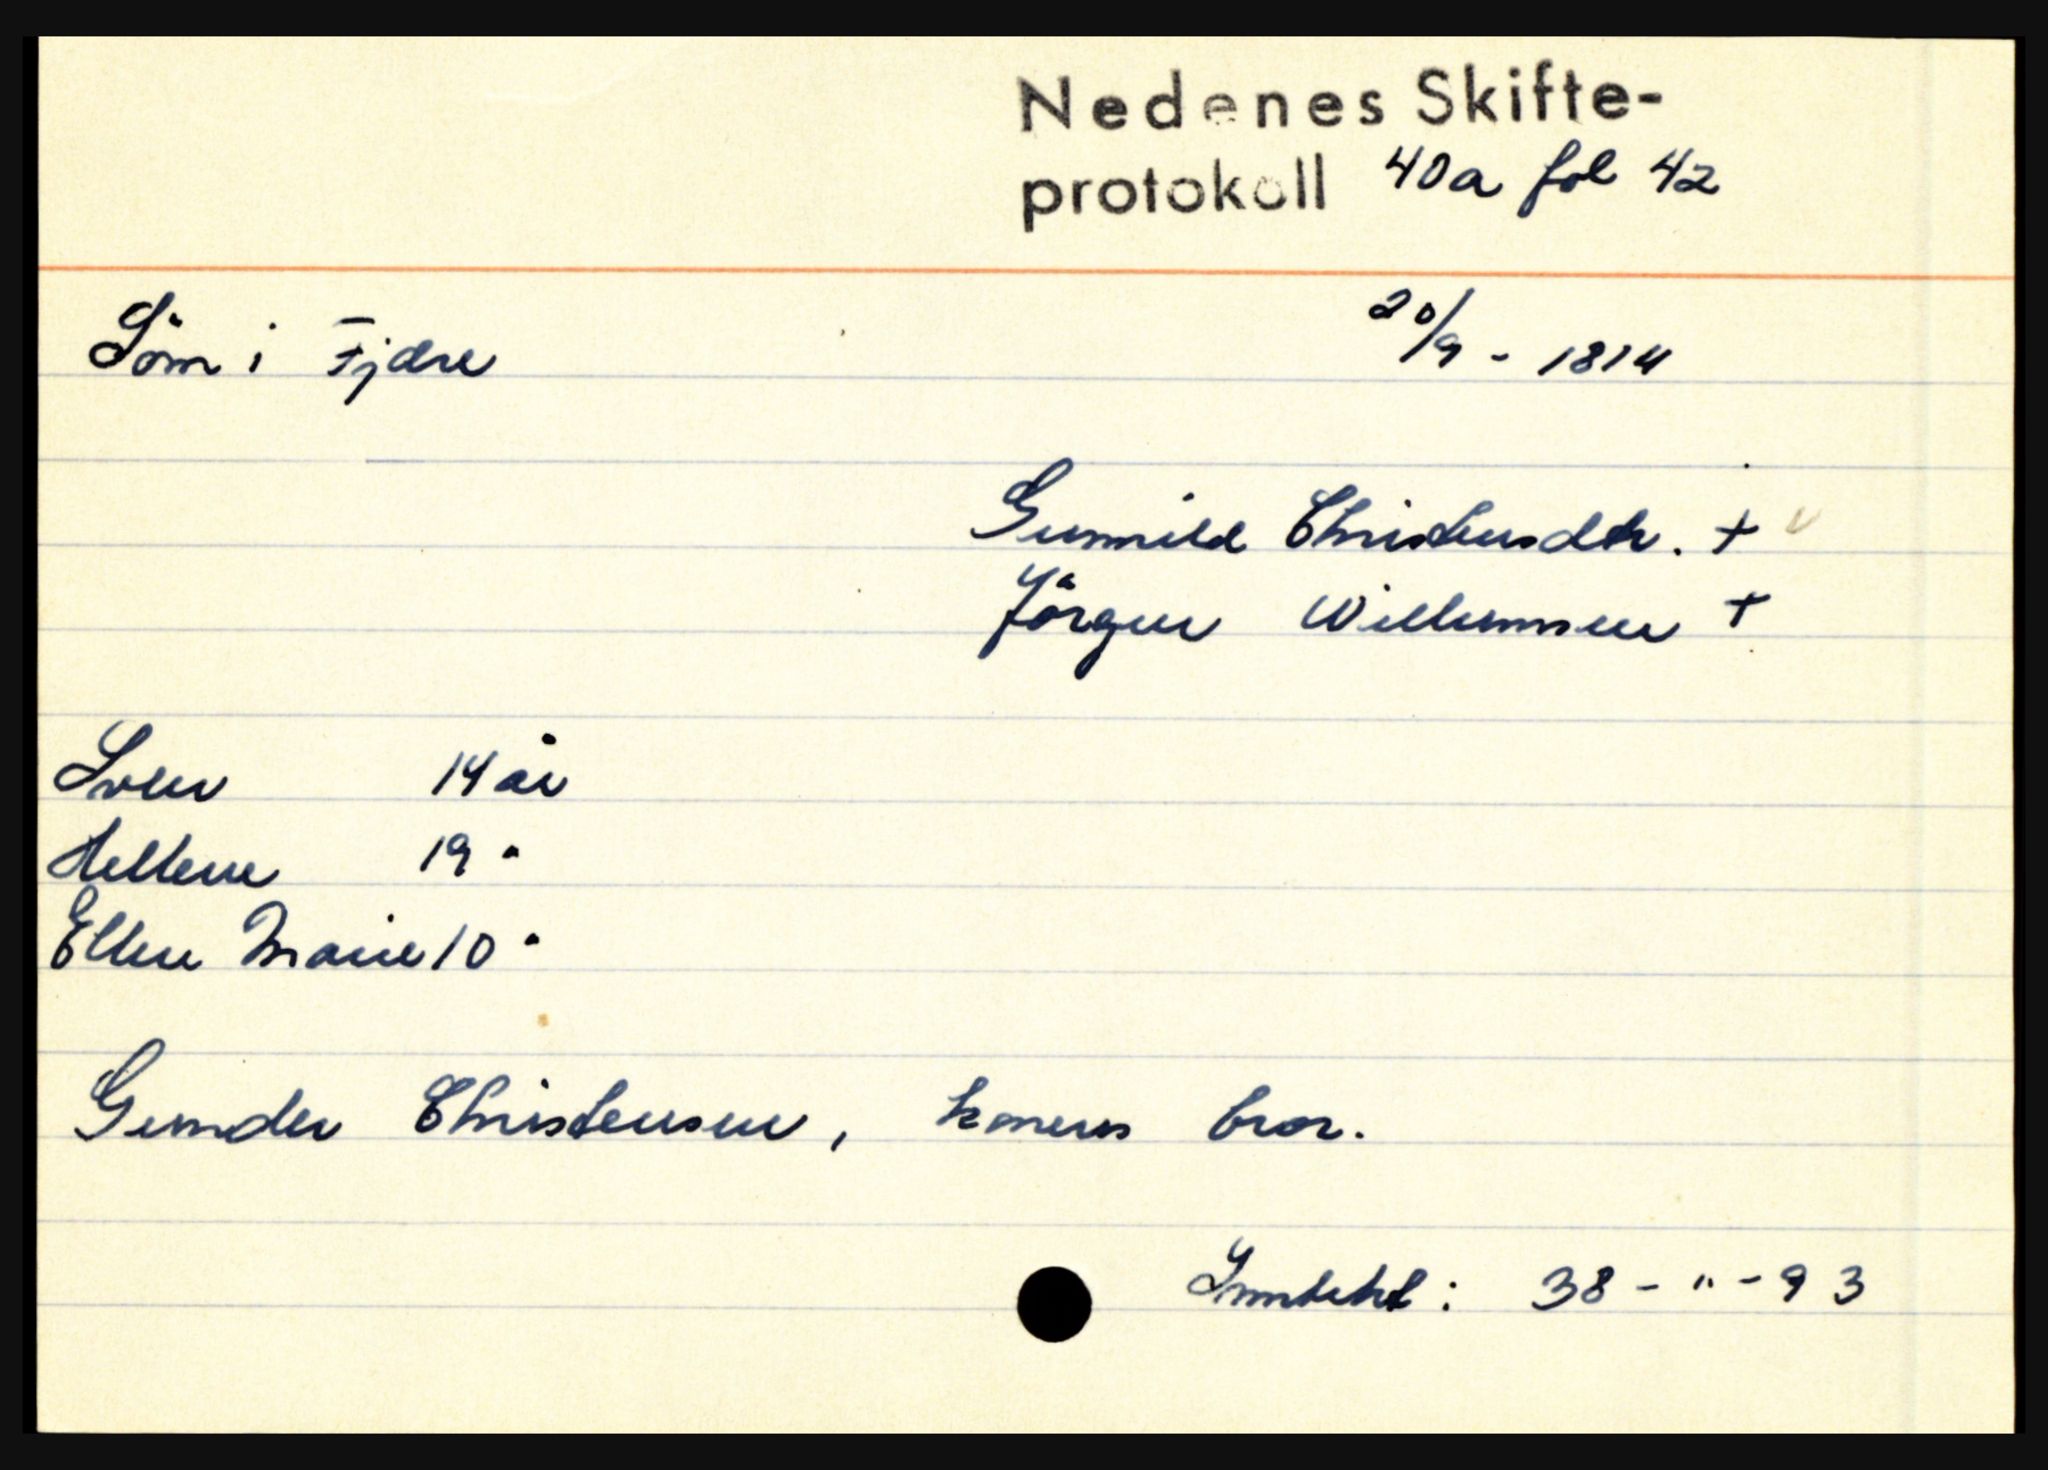 Nedenes Skifte-
protokoll 40a fol 42
Söm i Fjære 20/9 - 1814
Gunnild Christensdtr. +
Jörgen Willumsen +
Sven 14 år
Hellene 19 "
Ellen Marie 10 "
Gunder Christensen, konens bror.
Inntekt: 38 - " - 93